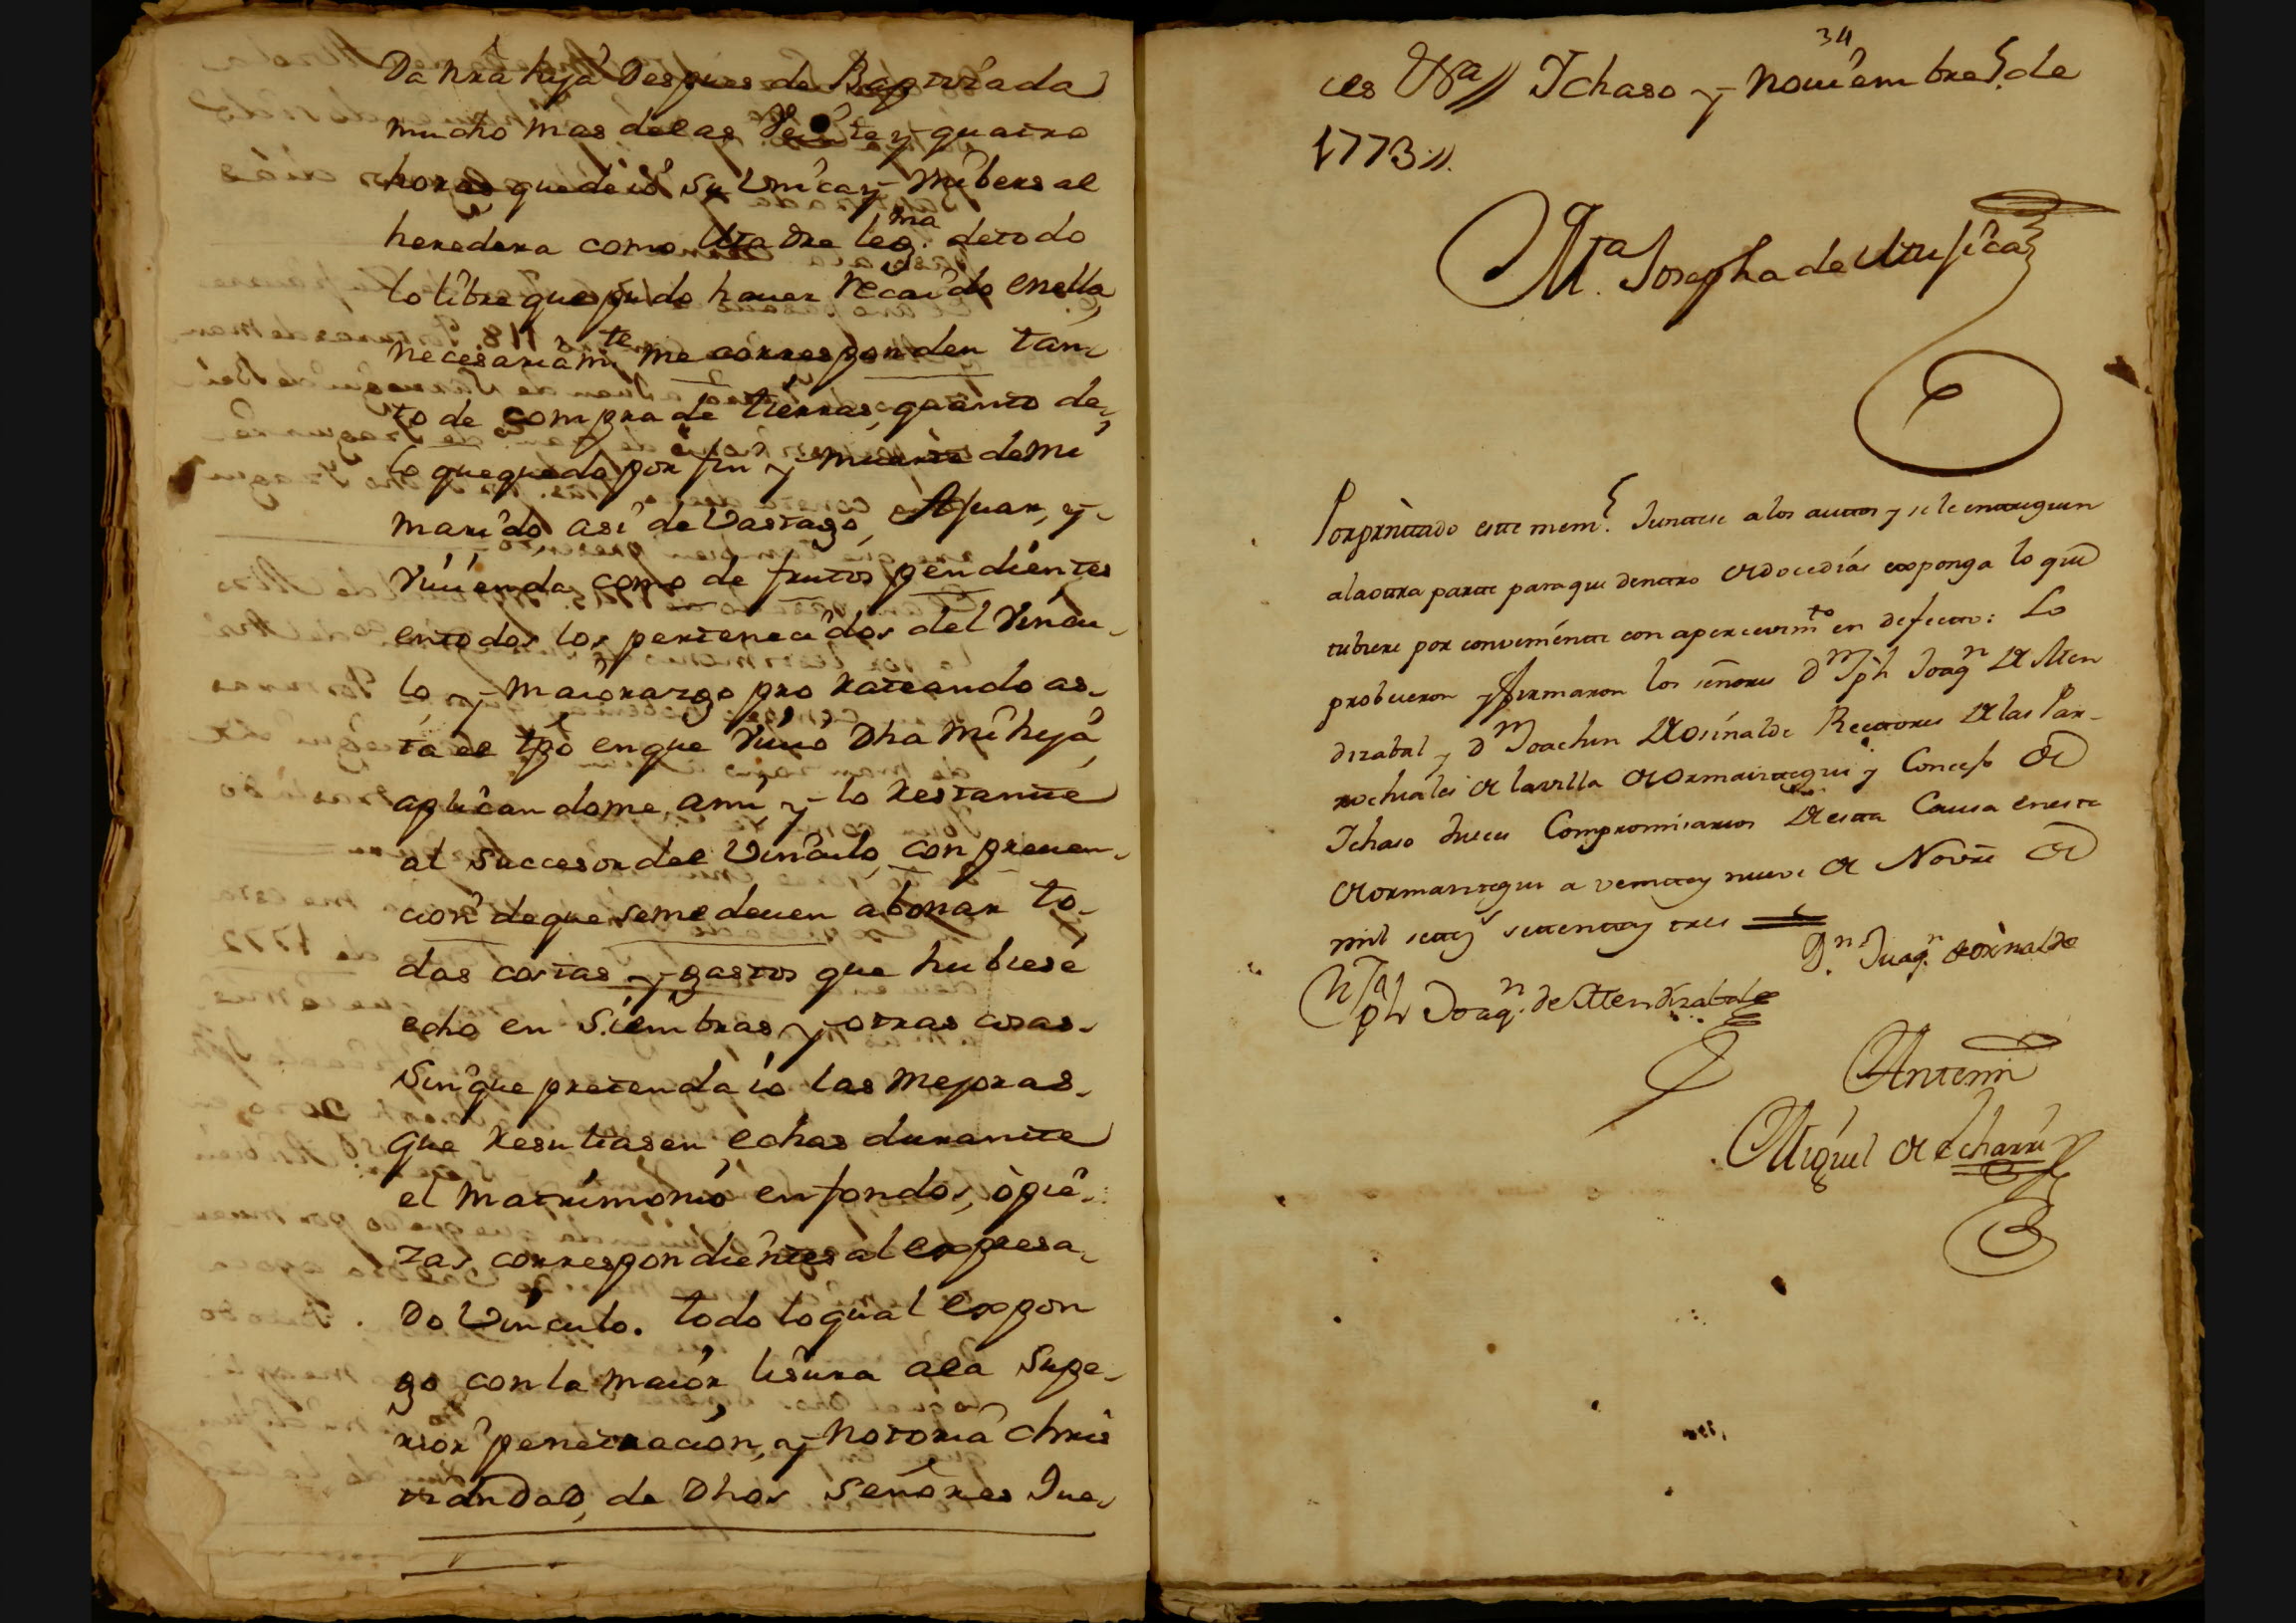 Da nra hija Despues de Baptizada
mucho mas de las Veinte y quatro
horas quede io su Unica y Unibersal
heredera como Madre leg.ma de todo
lo libre que pudo hauer recaido en ella,
necesariam.te me corresponden tan-
to de compra de tierras, quanto de
lo que quedo por fin y muerte de mi
marido asi de Vastago, Ajuar, y
viuienda como de frutos pendientes
en todos los pertenecidos del Vincu-
lo y maiorazgo pro rateando as-
ta el tpo en que viuio Dha mi hija,
aplicandome ami, y lo restante
al succesor del Vinculo, con preuen-
cion de que seme deuen abonar to-
das costas y gastos que hubiese
echo en Siembras y otras cosas.
Sin que pretenda io las mejoras
que resultasen echas durante
el matrimonio en fondos, ò pie-
zas correspondientes al expresa-
do Vinculo. todo lo qual expon
go con la maior lisura a la Supe-
rior penetracion, y notoria chris
tiandad, de Dhos Señores Jue-
34
ces Ychaso y Nouiembre de
1773
M.a Josepha de
Por presentado este mem.l Juntese a los autos y se le entreguen
a la otra parte para que dentro de doce dias exponga lo que
tubiere por conveniente con apercevim.to en defecto: Lo
probeieron y firmaron los señores D.n Jph Joaq.n de Men
dizabal y D.n Joachin de Osinalde Rectores de las Par-
rochiales de la villa de Ormaiztegui y Concejo de
Ichaso Jueces Compromisarios de esta Causa en esta
de Ormaiztegui a veinte y nueve de Novre de
mil setez.s setenta y tres
D.n Juaq.n de Osinalde
D.n Jph Joaq.n de Mendizabal
Antemi
Miguel de Echarri